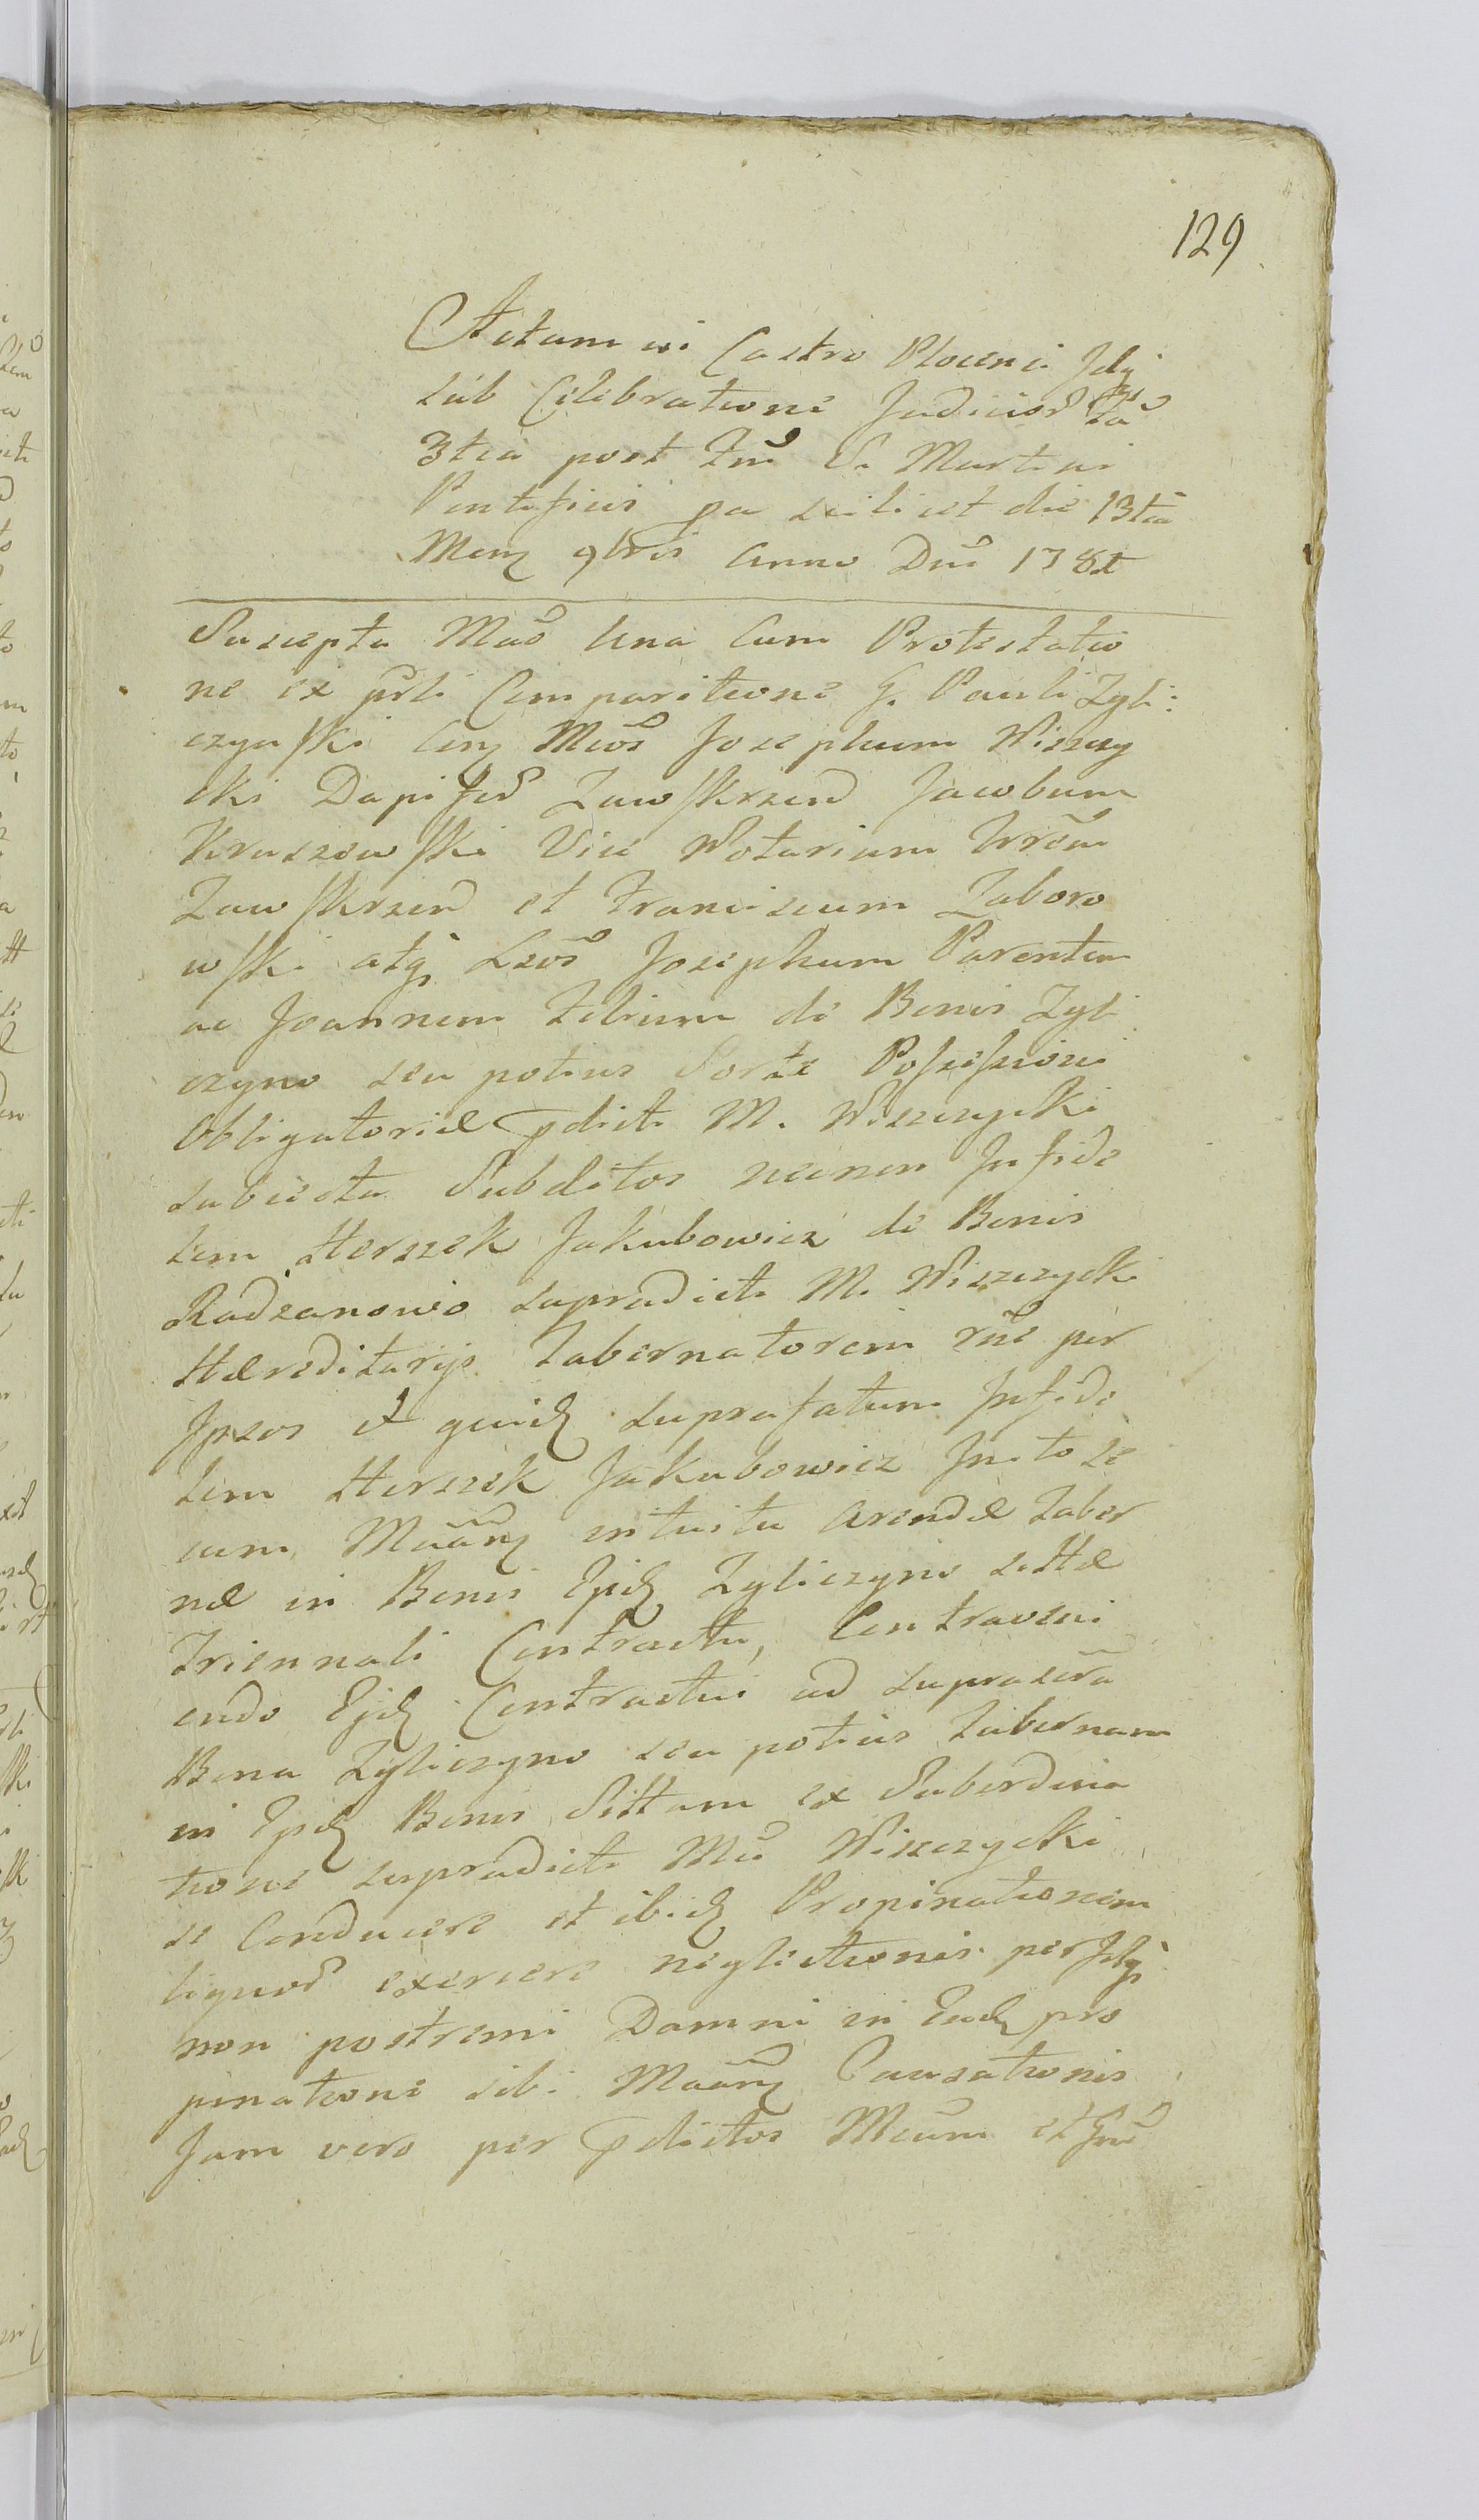 129
Actum in Castro Plocensi Idq
sub Celebratione Judicior
3tia post Fm̃ S. Martini
Pontificis pa scilicet die 13tia
Menʒ 9bris Anno Dni 178
Suscepta Mão Una Cum Protestatio
ne ex psti Comparitione G. Pauli Zyli:
czynski Cen Mcos Josephum Wiszczy
cki Dapiferʒ Zawskrzenʒ Jacobum
Kruszewski Vice Notarium Trem
Zawskrzenʒ et Franciscum Zaboro
wski atq Lsos Josephum Parentem
ac Joannem Filium de Bonis Zyli
czyno seu potius Sorte Possessioni
Obligatoriæ pdicti M. Wiszczycki
subiecta Subditos necnon Infide
lem Herszek Jakubowicz de Bonis
Radzanowo supradicti M. Wiszczycki
Hæreditarijs Tabernatorem rñe per
Ipsos et quidʒ suprafatum Infide
lem Herszek Jakubowicz Inito se
cum Mãanʒ intuitu arendæ Taber
næ in Bonis Ejsdʒ Zyliczyno sittæ
Triennali Contractu, Contraveni
endo Ejdʒ Contractui ad suprascra
Bona Zyliczyno seu potius Tabernam
in Ejsdʒ Bonis Sittam ex Subordina
tione supradicti Mci Wiszczycki
se Conducere et ibidʒ Propinationem
liquorʒ exercere neglectionis per Idq
non postremi Damni in Eadʒ pro
pinatione sibi Mãanʒ Causationis
Jam vero per pdictos Mcum et Gm̃